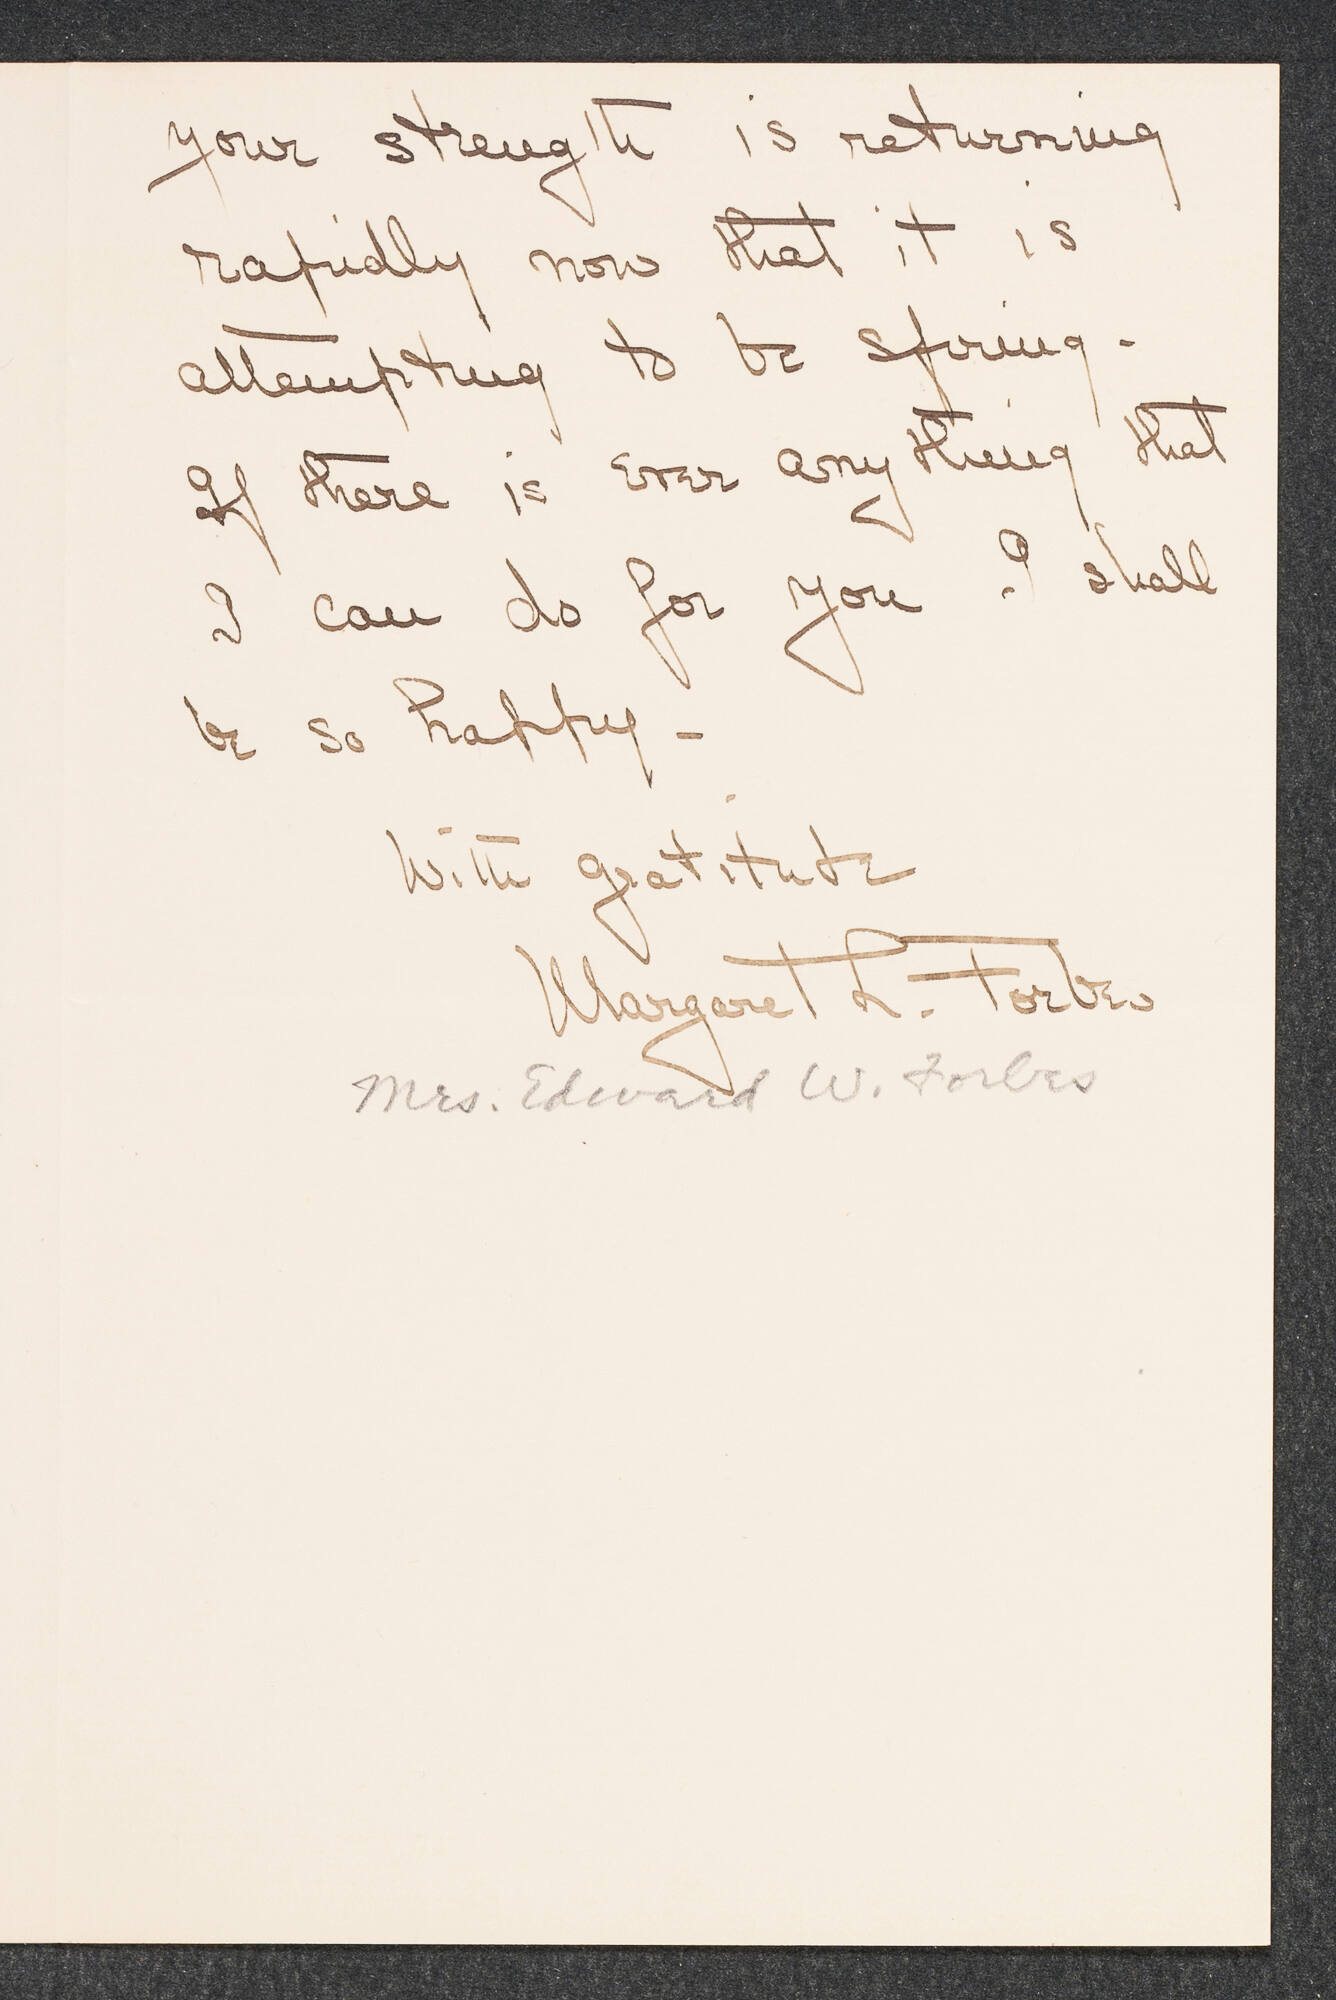 your strength is returning
rapidly now that it is
attempting to be spring -
If there is ever anything that
I can do for you I shall
be so happy -
With gratitude
Margaret L. Forbes
Mrs. Edward W. Forbes